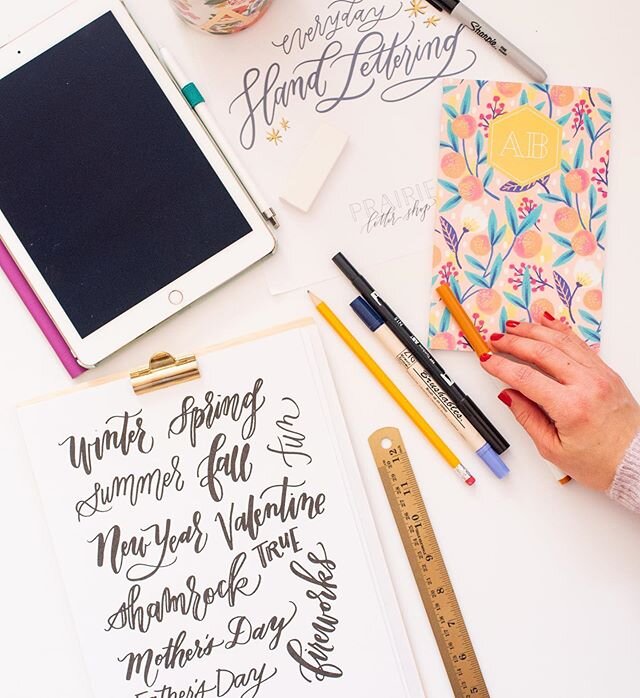 everyday
Hand Lettering
Sharpie
AB
PRAIRIE
letter shop
Brushables
winter spring
summer fall fun
New Year Valentine
TRUE
shamrock
fireworks
Mother's Day
Father's Day
12
11
10
9
8
7
6